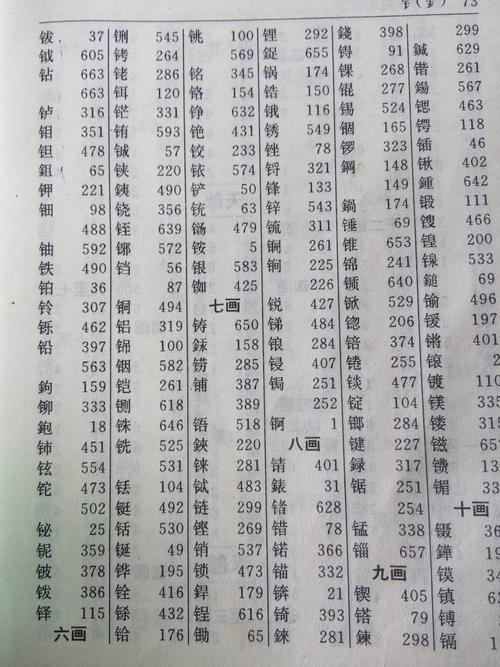 (釒) 73
钹 37
钺 605
钻 663
663
316
钼 351
钽 478
鉏 65
钾 221
钿 98
488
铀 592
铁 490
铂 36
铃 307
铄 462
铅 397
563
鉤 159
铆 333
鉋 18
铈 451
铉 554
铊 473
502
铋 25
铌 359
铍 378
386
铎 115
六画
铏 545
铐 264
铑 286
铒 120
铓 331
铕 593
铖 57
铗 220
490
铙 356
铚 639
铘 572
铛 56
87
铜 494
铝 319
100
铟 582
铠 261
铡 618
铢 646
铣 525
531
铥 104
铤 492
铦 530
49
铧 195
铨 416
铩 432
铪 176
铫 100
569
铭 345
铬 154
铮 632
铯 431
铰 233
铱 574
铲 50
铳 63
铴 479
铵 5
银 583
铷 425
七画
铸 650
158
铹 285
铺 387
389
铻 518
鋏 220
铼 281
铽 483
链 299
铿 269
销 537
锁 473
銲 179
锃 616
锄 65
锂 292
655
锅 174
锆 150
锇 116
锈 549
锉 78
锊 321
锋 133
锌 543
锍 311
锎 261
锏 225
226
锐 427
锑 484
锒 284
锓 407
锔 251
252
锕 1
八画
锖 401
錶 31
锗 628
错 78
锘 366
锚 332
锛 21
锜 393
錸 281
錢 398
锝 91
锞 268
锟 277
锡 524
锢 165
锣 323
鋼 148
149
鍋 174
锤 69
锥 653
锦 241
锧 640
锨 529
锪 206
锫 374
锩 255
锬 477
锭 104
284
键 227
録 317
锯 251
254
锰 338
锱 657
九画
锲 405
79
鍊 298
299
鍼 629
锴 261
鍚 567
锶 463
锷 118
锸 46
锹 402
鍾 642
锻 111
锼 466
锽 200
533
鎚 69
496
锾 197
锵 401
镀 110
镁 335
镂 315
镃
镄
镅
十画
镊
鏵
镆
镇
镈
镉